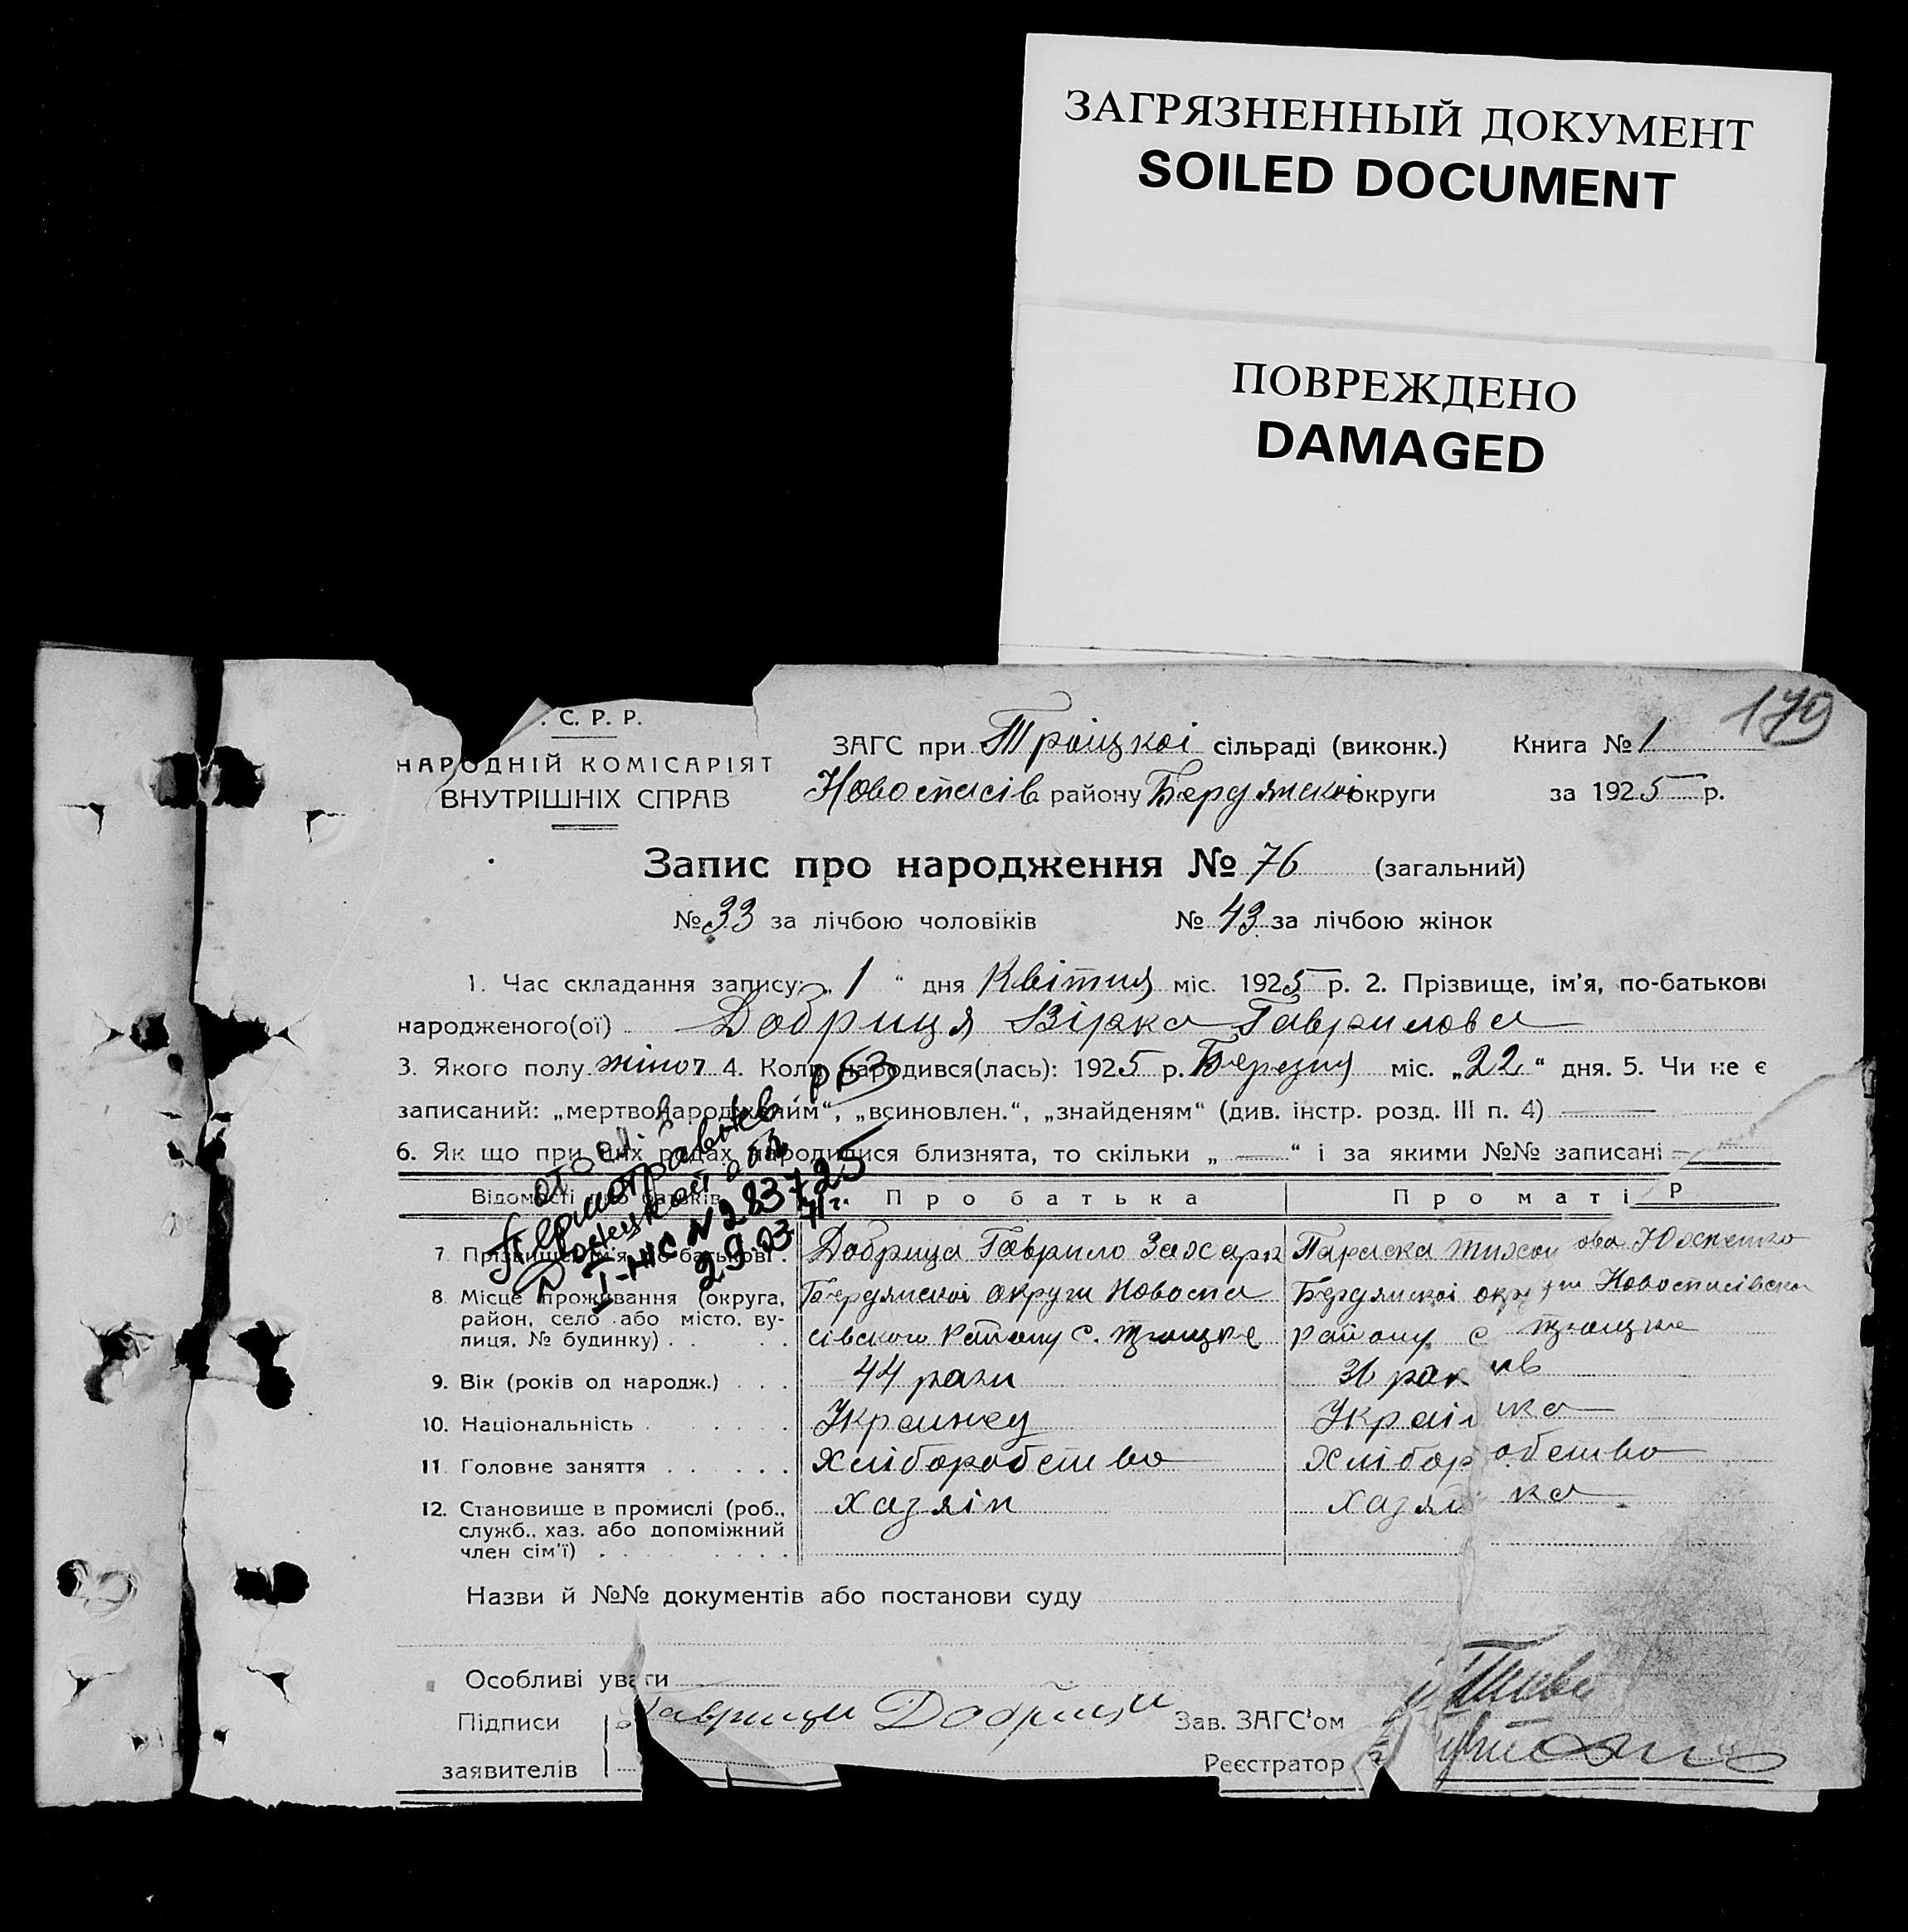 ЗАГРЯЗНЕННЫЙ ДОКУМЕНТ
SOILED DOCUMENT
ПОВРЕЖДЕНО
DAMAGED
179
. С. Р. Р.
НАРОДНІЙ КОМІСАРІЯТ
ВНУТРІШНІХ СПРАВ
ЗАГС при Троіцкоі сільраді (виконк.) Книга № 1
Новоспасів району Бердянскоі округи за 1925 р.
Запис про народження № 76 (загальний)
№ 33 за лічбою чоловіків № 43 за лічбою жінок
1. Час складання запису: „ 1 “ дня Квітня міс. 1925 р. 2. Прізвище, ім’я, по-батькові
народженого(ої) Добриця Вірка Гаврилова
3. Якого полу жіноч 4. Коли народився(лась): 1925 р. Березня міс. „22“ дня. 5. Чи не є
записаний: „мертвонародженим“, „всиновлен.“, „знайденям“ (див. інстр. розд. III п. 4)
6. Як що при цих родах народилися близнята, то скільки „ — “ і за якими №№ записані —
Відомості про батьків Про батька Про матір
7. Прізвище, ім’я, по-батькові . Добрица Гаврило Захарк Параска Тихонова Юхненко
8. Місце проживання (округа, Бердянскоі округи Новоспа Бердянскоі округи Новоспасівско
район, село або місто, ву-
лиця, № будинку) . . . . сівского Району с. Троицке району с Троицке
9. Вік (років од народж.) . . 44 роки 36 років
10. Національність Украинец Украінка
11. Головне заняття . . . . . Хліборобство Хліборобство
12. Становище в промислі (роб., Хазяін Хазяйка
служб., хаз. або допоміжний
член сім’ї)
Назви й №№ документів або постанови суду
Особливі уваги
Підписи Гаврици Добрици Зав. ЗАГС’ом
заявителів Реєстратор
Донецкой обл
I-НС № 283725
29.03.71г.